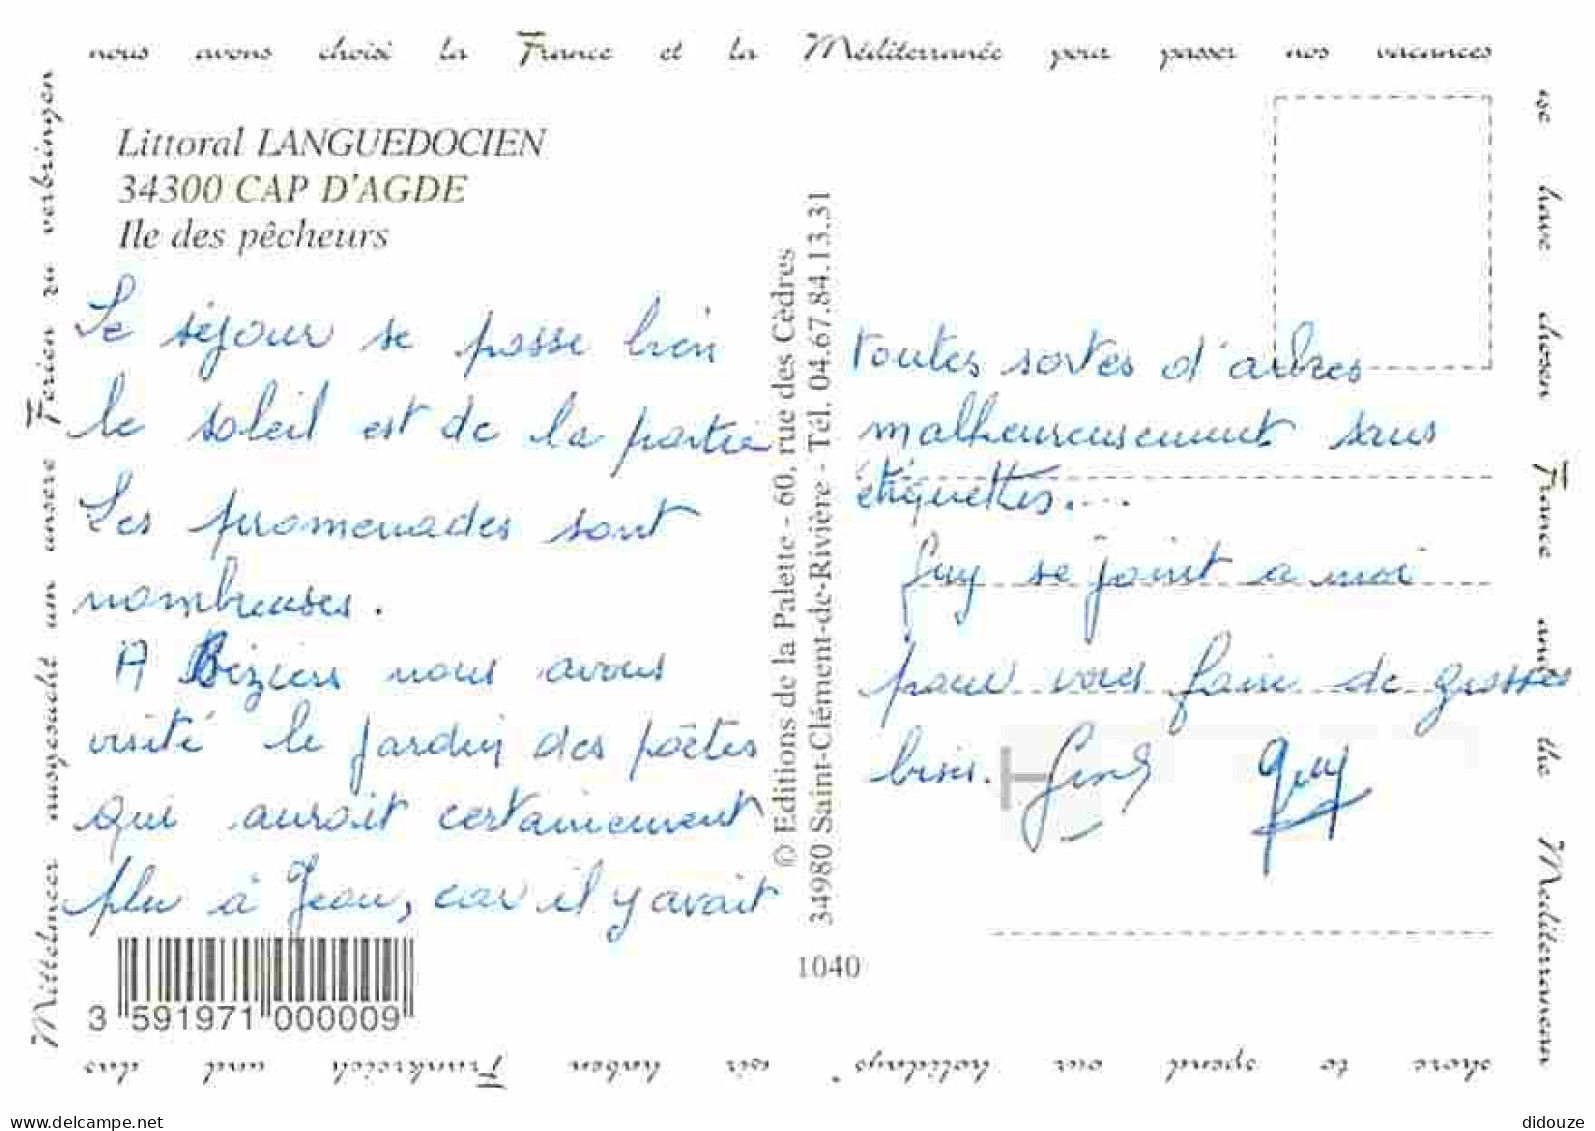 nous avons choisi la France et la Méditerranée pour passer nos vacances
we have chosen France and the Mediterranean
shore to spend our holidays
wir haben Frankreich und das
Mittelmeer ausgesucht um unsere Ferien zu verbringen
Littoral LANGUEDOCIEN
34300 CAP D'AGDE
Ile des pêcheurs
Le séjour se passe bien
le soleil est de la partie
Les promenades sont
nombreuses.
A Béziers nous avons
visité le jardin des poètes
qui aurait certainement
plu à Jean, car il y avait
3 591971 000009
© Editions de la Palette - 60, rue des Cèdres
34980 Saint-Clément-de-Rivière - Tél. 04.67.84.13.31
1040
toutes sortes d'arbres
malheureusement sans
étiquettes....
Guy se joint a moi
pour vous faire de grosses
bises.
Guy
www.delcampe.net
didouze